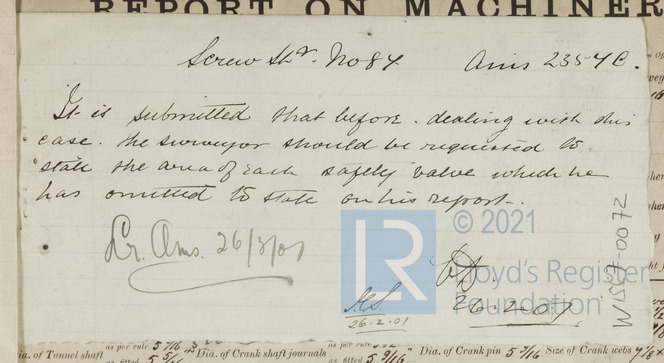 REPORT ON MACHINER
Screw Str. No 84 Ams 2354 C.
It is submitted that before dealing with this
case. the surveyor should be requested to
state the area of each safety valve which he
has omitted to state on his report.
Lr. Ams. 26/3/01
© 2021
LR
Lloyd's Register
Foundation
26.2.01
26-2-01
W1537-0072
ia. of Tunnel shaft as per rule 5 7/16 Dia. of Crank shaft journals as per rule Dia. of Crank pin 5 9/16 Size of Crank webs
as fitted 5 5/16 as fitted 5 9/16